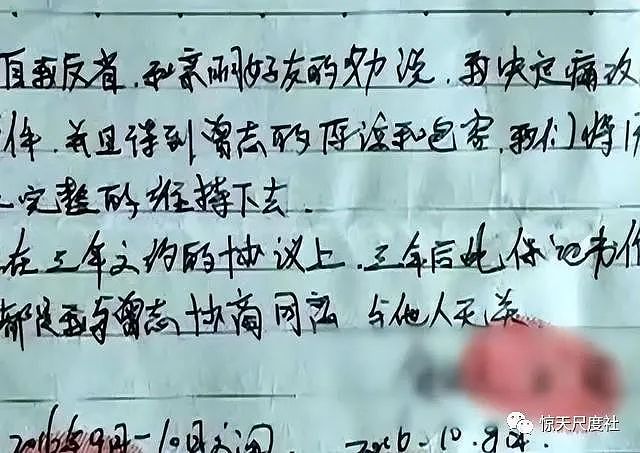 自我反省,和亲朋好友的劝说,我决定痛改
件,并且得到曾志的原谅和包容,我们将
完整的维持下去.
在三年之约的协议上,三年后此保证书作
都是我与曾志协商同意 与他人无关
2016年9月-10月之间. 2016.10.
惊天尺度社